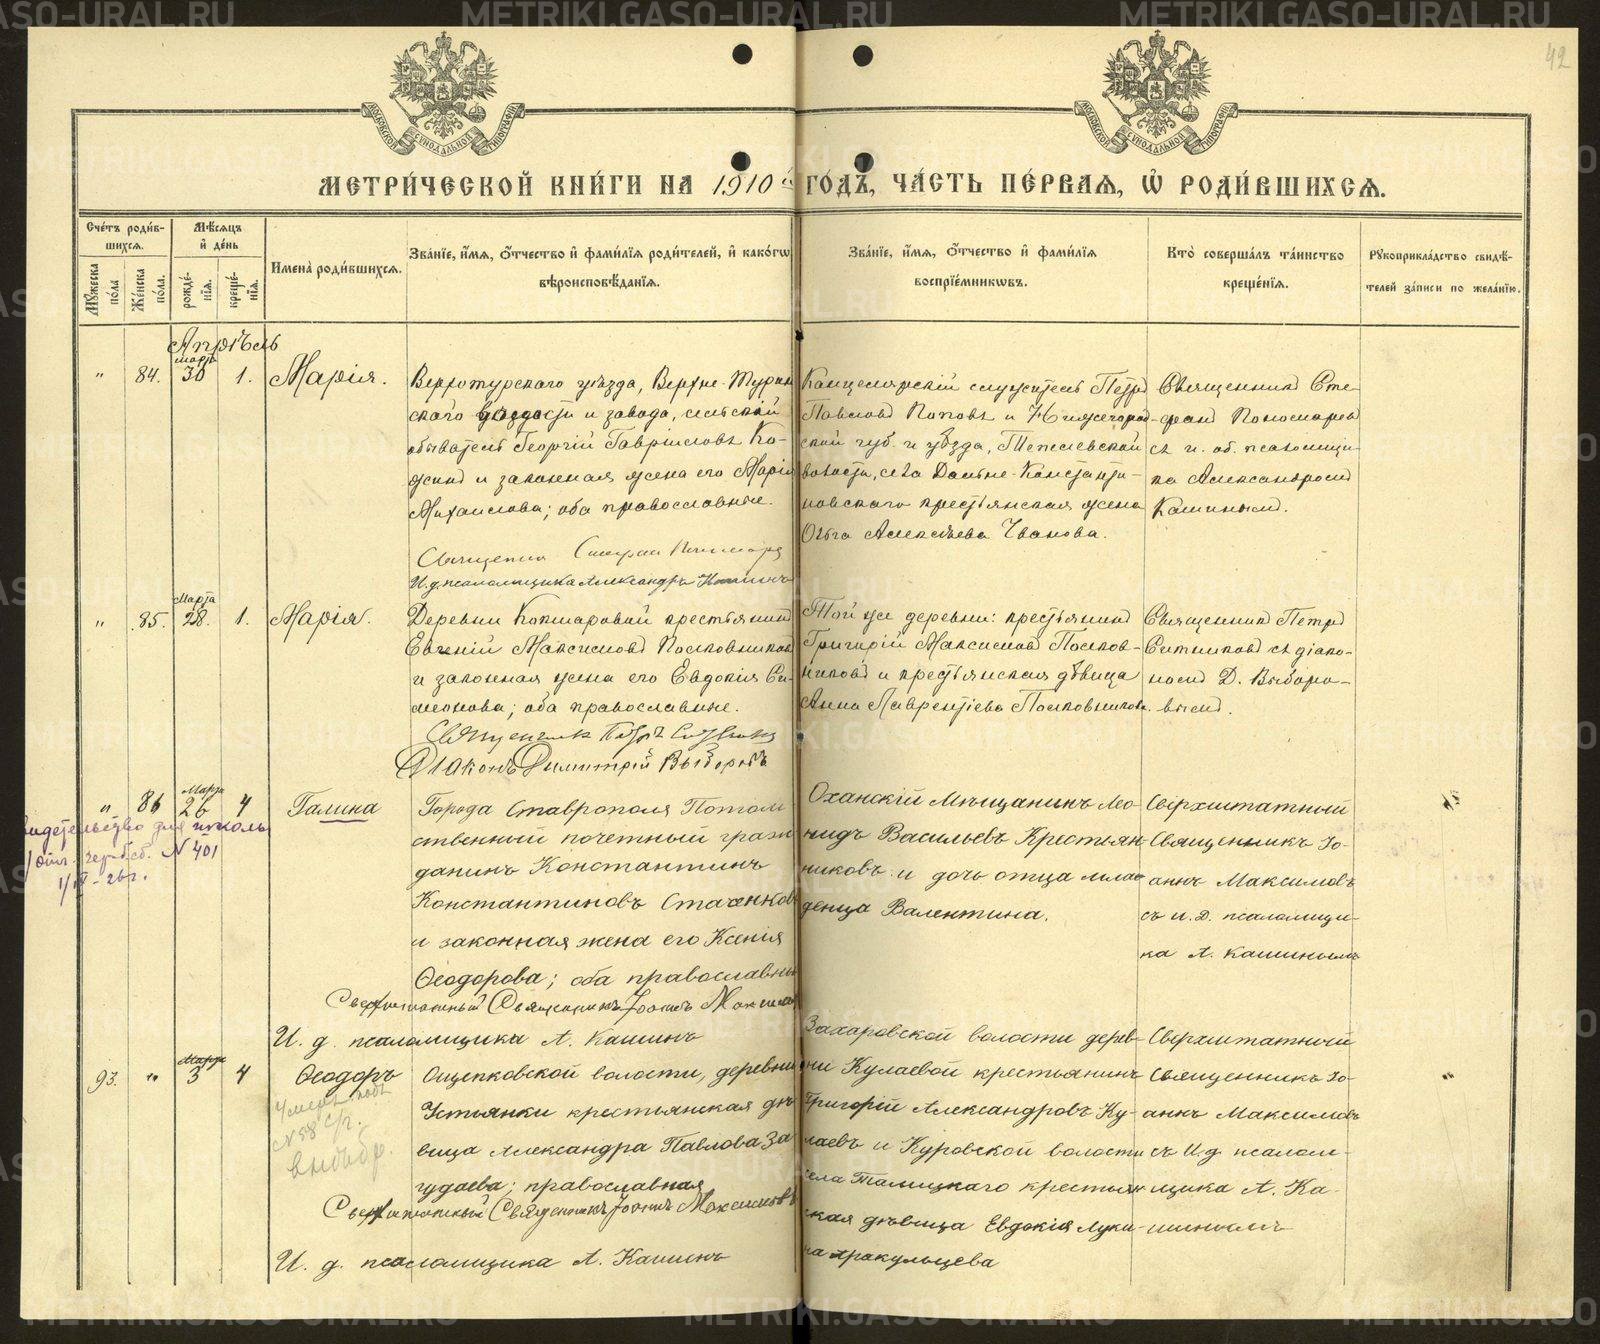 METRIKI.GASO-URAL.RU
42
МОСКОВСКОЙ СУНОДАЛЬНОЙ ТИПОГРАФІИ
МОСКОВСКОЙ СУНОДАЛЬНОЙ ТИПОГРАФІИ
МЕТРИ́ЧЕСКОЙ КНИ́ГИ НА 1910 й ГО́ДЪ, ЧА́СТЬ ПЕ́РВАѦ, Ѡ҆ РОДИ́ВШИХСѦ.
Сче́тъ роди́в-
шихсѧ.
Мꙋ́жеска по́ла
Же́нска по́ла.
Мѣ́сѧцъ
и҆ де́нь
рожде́-нїѧ.
креще́-нїѧ.
Имена̀ роди́вшихсѧ.
Зва́нїе, и҆́мѧ, ѻ҆́тчество и҆ фами́лїѧ роди́телей, и҆ како́гѡ
вѣроисповѣ́данїѧ.
Зва́нїе, и҆́мѧ, ѻ҆́тчество и҆ фами́лїѧ
воспрїе́мникѡвъ.
Кто̀ соверша́лъ та́инство
креще́нїѧ.
Рꙋкоприкла́дство свидѣ́-
телей за́писи по жела́нїю.
Апрѣль
" 84. марта 30 1. Марія.
Верхотурскаго уѣзда, Верхне-Турин
скаго волости и завода, сельскій
обыватель Георгій Гавріиловъ Ко-
жинъ и законная жена его Марія
Михаилова; оба православные.
Священникъ Стефанъ Пономаревъ
И. д. псаломщика Александръ Кашинъ
Канцелярскій служитель Петръ
Павловъ Поповъ и Нижегород-
ской губ. и уѣзда, Тепелевской
волости, села Дальне-Константи-
новскаго крестьянская жена
Ольга Алексѣева Иванова.
Священникъ Сте-
фанъ Пономаревъ
съ и. об. псаломщи-
ка Александромъ
Кашинымъ.
" 85. Марта 28. 1. Марія.
Деревни Кокшаровой крестьянинъ
Евгеній Максимовъ Полковниковъ
и законная жена его Евдокія Си-
меонова; оба православные.
Священникъ Петръ Ситниковъ
Діаконъ Димитрій Выборовъ
Той же деревни: крестьянинъ
Григорій Максимовъ Полков-
никовъ и крестьянская дѣвица
Анна Лаврентіева Полковникова.
Священникъ Петръ
Ситниковъ съ діако-
номъ Д. Выборо-
вымъ.
" 86 Марта 26 4 Галина
видетельство для школы
N 401
1/IV-26г.
Города Ставрополя Потом
ственный почетный граж
данинъ Константинъ
Константиновъ Стаценковъ
и законная жена его Ксенія
Ѳеодорова; оба православные
Сверхштатный Священникъ Іоаннъ Максимовъ
И. д. псаломщика А. Кашинъ
Оханскій Мѣщанинъ Лео
нидъ Васильевъ Крестьян
никовъ и дочь отца млад
денца Валентина.
Сверхштатный
Священникъ Іо-
аннъ Максимовъ
съ и. д. псаломщи-
ка А. Кашинымъ
93. " Марта 3 4 Ѳеодоръ
Умеръ подъ
N 58
Ощепковской волости, деревни
Устьянки крестьянская дѣ
вица Александра Павлова За
гудаева; православная
Сверхштатный Священникъ Іоаннъ Максимовъ
И. д. псаломщика А. Кашинъ
Захаровской волости дерев-
ни Кулаевой крестьянинъ
Григорій Александровъ Ку-
лаевъ и Куровской волости
села Талицкаго крестьян
ская дѣвица Евдокія Луки-
на Аракульцева
Сверхштатный
Священникъ Іо-
аннъ Максимовъ
съ И. д. псалом-
щика А. Ка-
шинымъ
METRIKI.GASO-URAL.RU